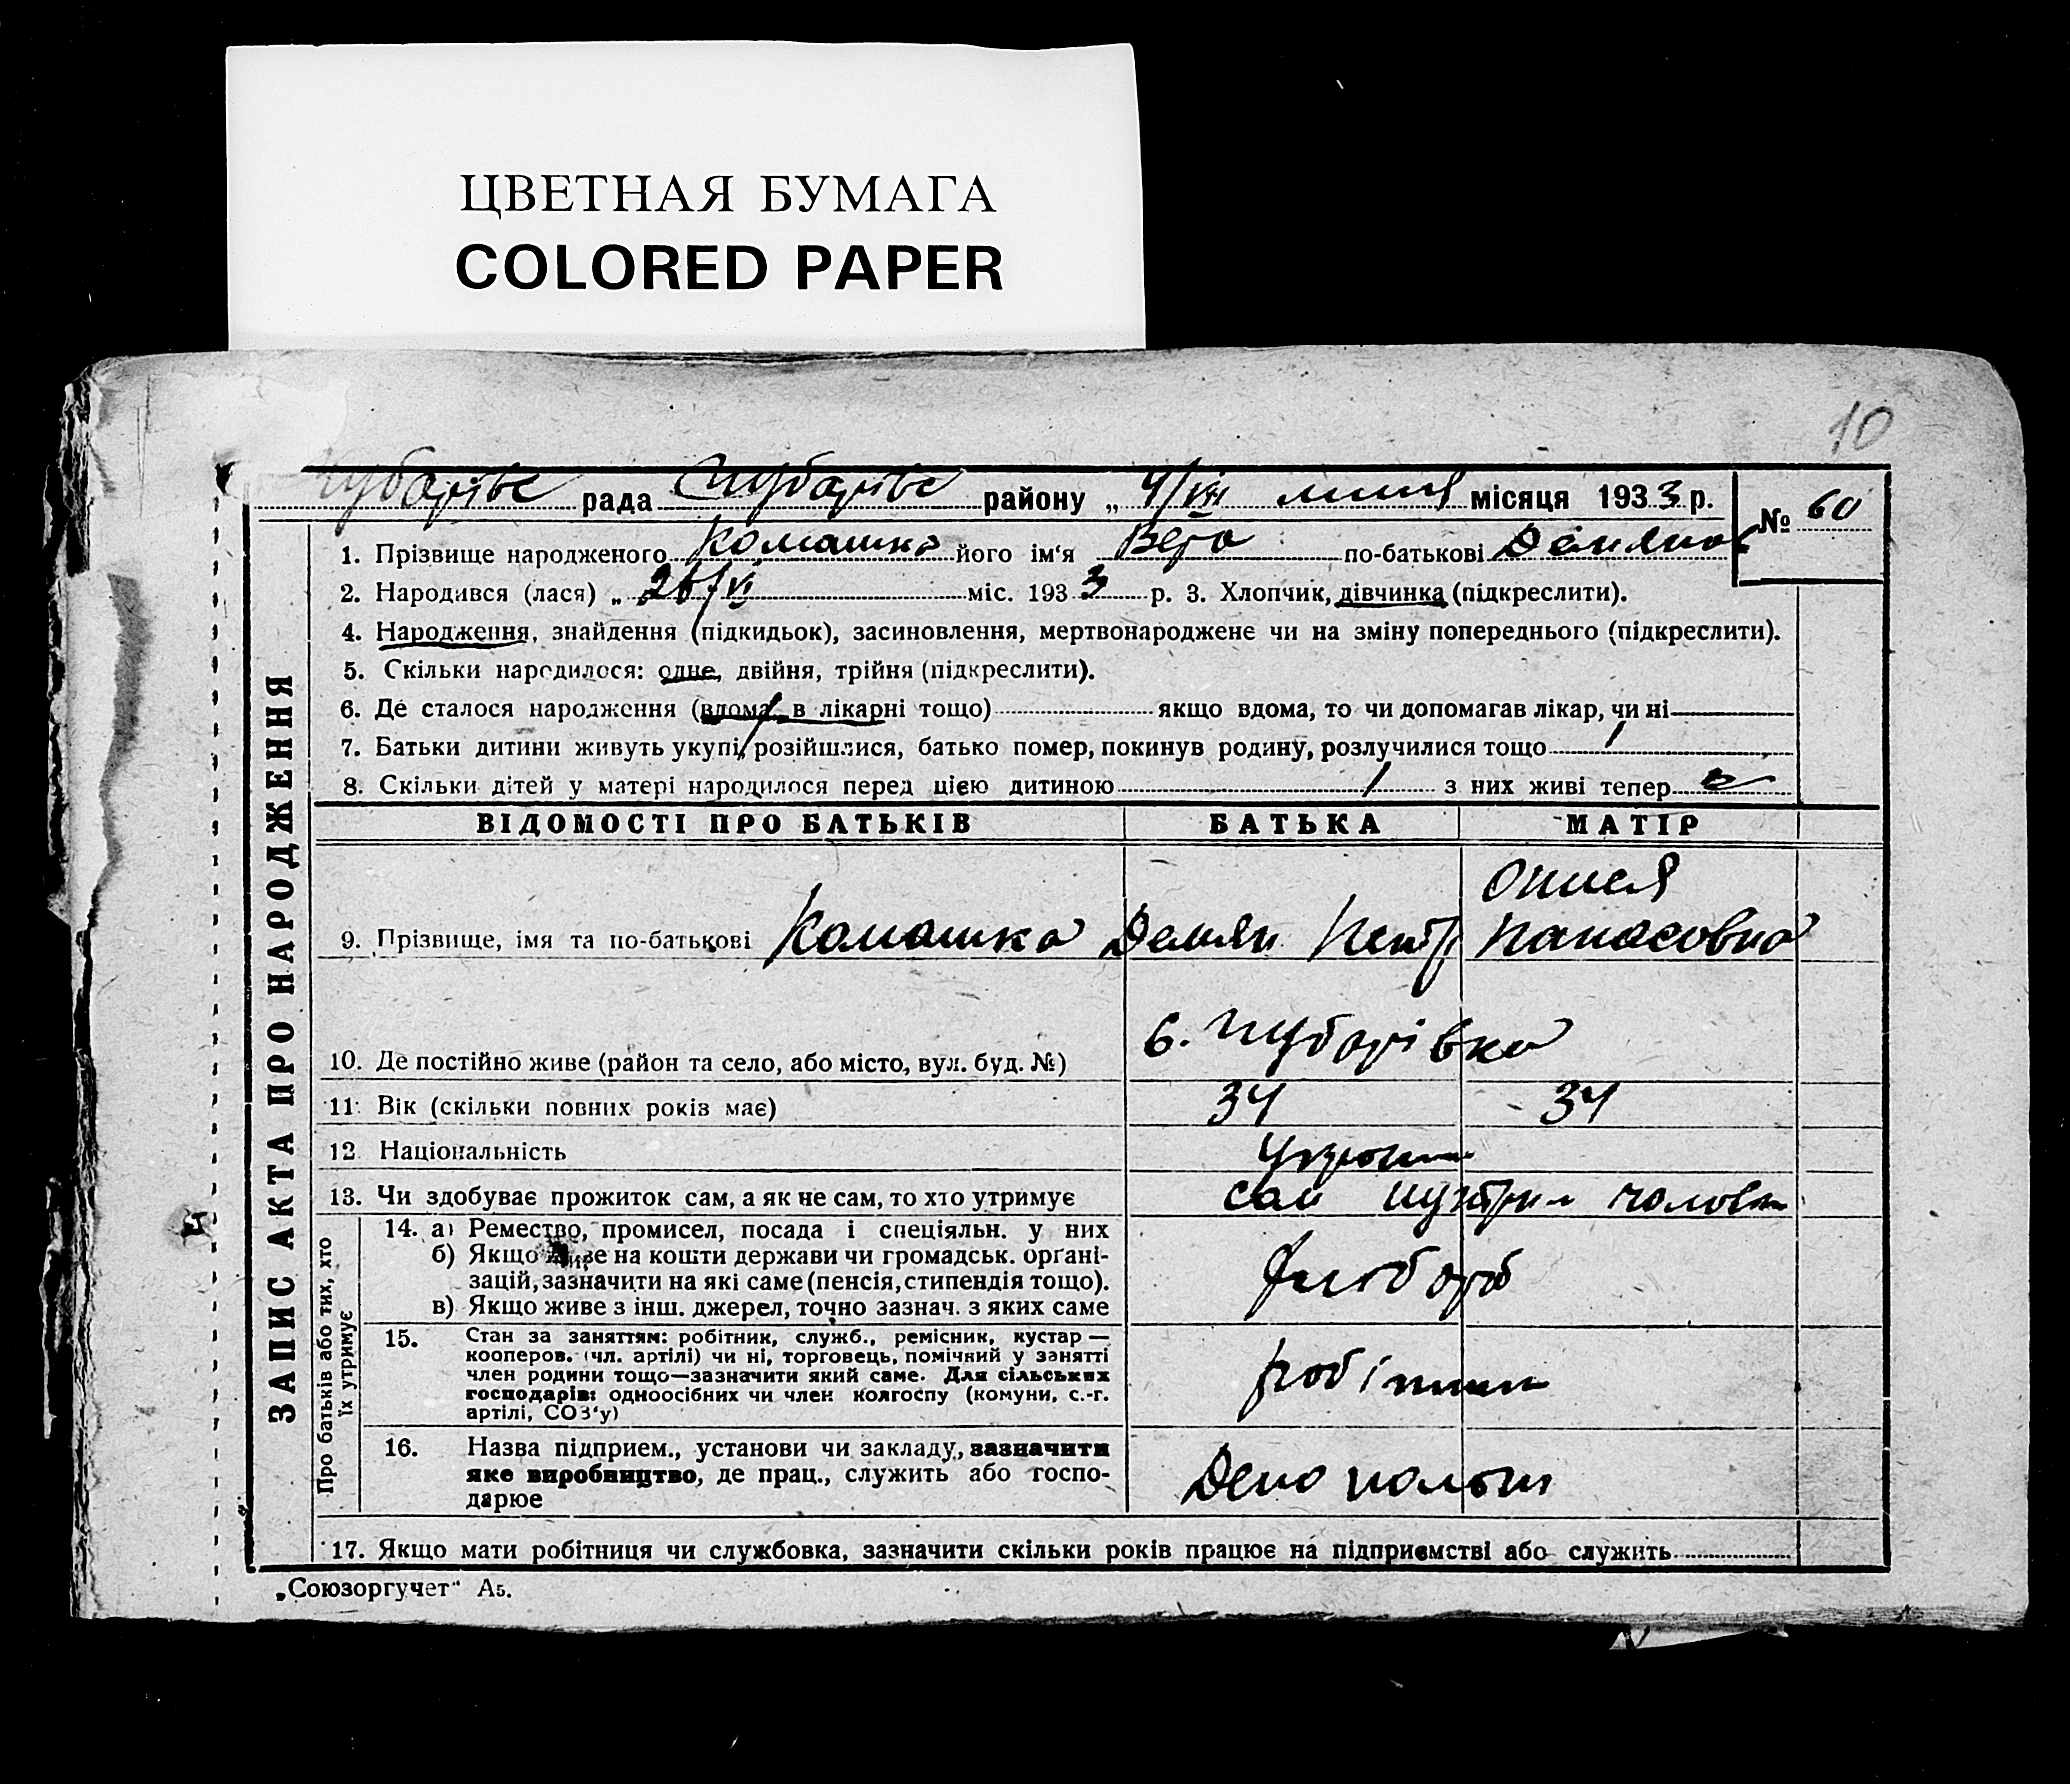 ЦВЕТНАЯ БУМАГА
COLORED PAPER
10
рада району „ 4/VII липня місяця 1933 р. № 60
1. Прізвище народженого Комашка його ім'я Вера по-батькові Демянов
2. Народився (лася) „ 26/VI міс. 1933 р. 3. Хлопчик, дівчинка (підкреслити).
4. Народження, знайдення (підкидьок), засиновлення, мертвонароджене чи на зміну попереднього (підкреслити).
5. Скільки народилося: одне, двійня, трійня (підкреслити).
6. Де сталося народження (вдома, в лікарні тощо) якщо вдома, то чи допомагав лікар, чи ні
7. Батьки дитини живуть укупі, розійшлися, батько помер, покинув родину, розлучилися тощо
8. Скільки дітей у матері народилося перед цією дитиною 1 з них живі тепер
ВІДОМОСТІ ПРО БАТЬКІВ БАТЬКА МАТІР
9. Прізвище, імя та по-батькові Комашка Демян Петр Панасовна
10. Де постійно живе (район та село, або місто, вул. буд. №)
11. Вік (скільки повних років має) 34 34
12 Національність
13. Чи здобуває прожиток сам, а як не сам, то хто утримує сам
14. а) Ремество, промисел, посада і спеціяльн. у них
б) Якщо живе на кошти держави чи громадськ. орґані-
зацій, зазначити на які саме (пенсія, стипендія тощо).
в) Якщо живе з інш. джерел, точно зазнач. з яких саме
15. Стан за заняттям: робітник, служб., ремісник, кустар —
кооперов. (чл. артілі) чи ні, торговець, помічний у занятті
член родини тощо—зазначити який саме. Для сільських
господарів: одноосібних чи член колгоспу (комуни, с.-г.
артілі, СОЗ'у)
робітник
16. Назва підприєм., установи чи закладу, зазначити
яке виробництво, де прац., служить або госпо-
дарює
Депо
17. Якщо мати робітниця чи службовка, зазначити скільки років працює на підприємстві або служить
„Союзоргучет" А5.
ЗАПИС АКТА ПРО НАРОДЖЕННЯ
Про батьків або тих, хто
їх утримує